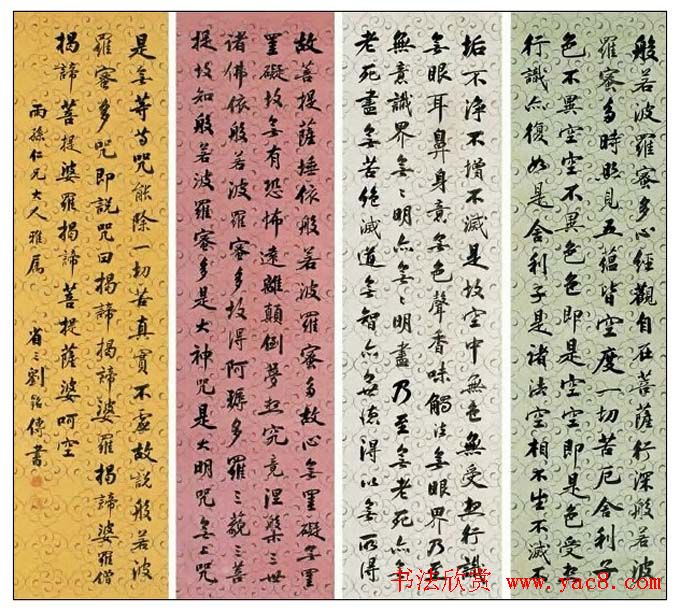 般若波羅蜜多心經觀自在菩薩行深般若波
羅蜜多時照見五蘊皆空度一切苦厄舍利子
色不異空空不異色色即是空空即是色受想
行識亦復如是舍利子是諸法空相不生不滅不
垢不净不增不滅是故空中無色無受想行識
无眼耳鼻身意无色聲香味觸法无眼界乃至
無意識界无〻明亦无〻明盡乃至无老死亦无
老死盡无苦絶滅道无智亦无德得以无所得
故菩提薩埵依般若波羅蜜多故心无罣礙无罣
罣礙故无有恐怖遠離顛倒夢想究竟涅槃三世
諸佛依般若波羅蜜多故得阿耨多羅三藐三菩
提故知般若波羅蜜多是大神咒是大明咒无上咒
是无等等咒能除一切苦真實不虛故説般若波
羅蜜多咒即説咒曰揭諦揭諦婆羅揭諦婆羅僧
揭諦菩提婆羅揭諦菩提薩婆呵空
丙孫仁兄大人雅屬
省三劉銘傳書
书法欣赏 www.yac8.com